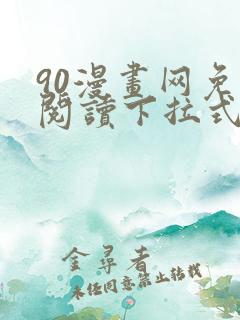 90漫畫网免
閱讀下拉式
金尋者
未经同意禁止转载